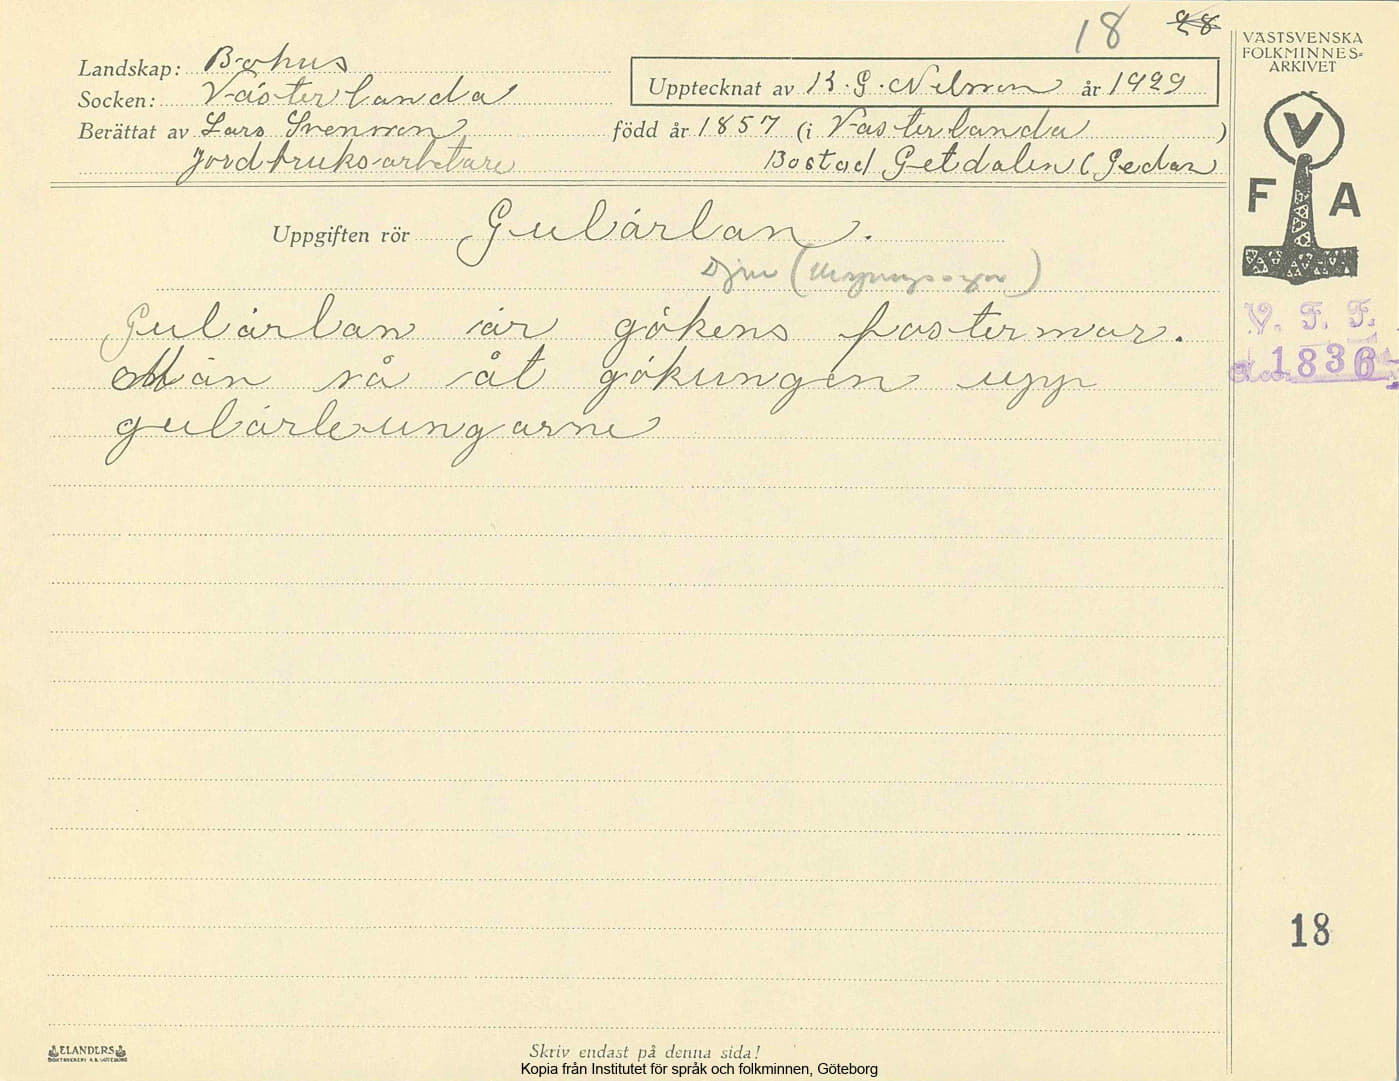 18 28
VÄSTSVENSKA
FOLKMINNES=
ARKIVET
Landskap: Bohus
Socken: Västerlanda
Upptecknat av K. G. Nilsson år 1929
Berättat av Lars Svensson född år 1857 (i Västerlanda )
Jordbruksarbetare Bostad Getdalen (Gedan
V
F A
Uppgiften rör Gulärlan.
Djur (Ursprungssägn)
Gulärlan är gökens fostermor.
Män så åt gökungen upp
gulärleungarne
V. F. F.
1836
18
ELANDERS
BOKTRYCKERI A.B. GÖTEBORG
Skriv endast på denna sida!
Kopia från Institutet för språk och folkminnen, Göteborg